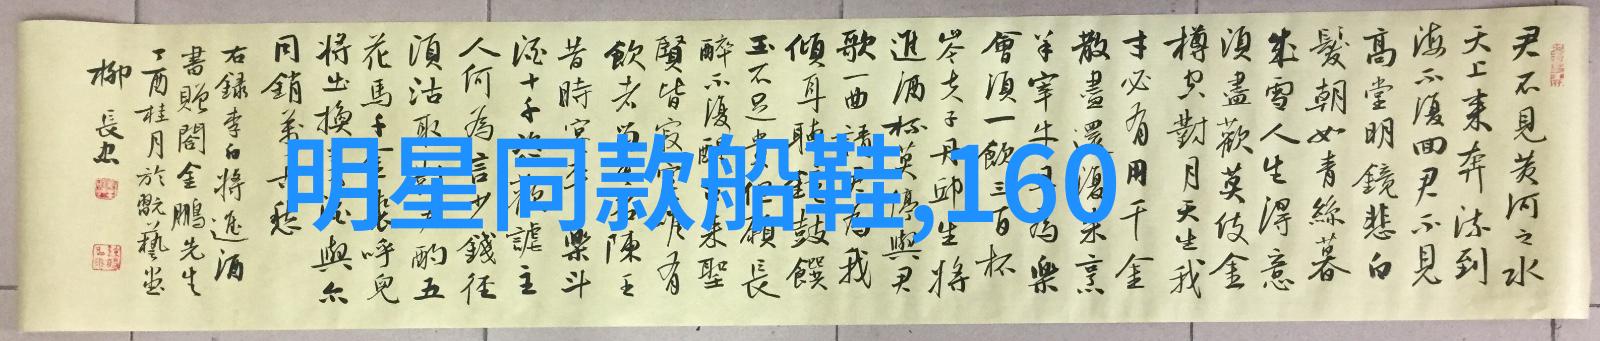 君不見黃河之水
天上來奔流到
海不復回君不見
高堂明鏡悲白
髮朝如青絲暮
成雪人生得意
須盡歡莫使金
樽空對月天生我
才必有用千金
散盡還復來烹
羊宰牛且為樂
會須一飲三百杯
岑夫子丹邱生將
進酒杯莫停與君
歌一曲請君為我
傾耳聽鐘鼓饌
玉不足貴但願長
醉不復醒古來聖
賢皆寂寞唯有
飲者留其名陳王
昔時宴平樂斗
酒十千恣歡謔主
人何為言少錢徑
須沽取對君酌五
花馬千金裘呼兒
將出換美酒與爾
同銷萬古愁
右錄李白將進酒
書贈閣金鵬先生
丁酉桂月於翫藝堂
柳長忠
明星同款船鞋,160